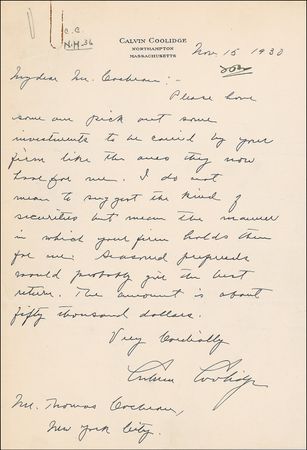 C.C.
N.H. 36
CALVIN COOLIDGE
NORTHAMPTON
MASSACHUSETTS
Nov. 15 1930
My dear Mr. Cochran:-
Please have
some one pick out some
investments to be carried by your
firm like the ones they now
have for me. I do not
mean to suggest the kind of
securities but mean the manner
in which your firm holds them
for me. Seasoned preferreds
would probably give the best
return. The amount is about
fifty thousand dollars.
Very Cordially
Calvin Coolidge
Mr. Thomas Cochran,
New York City.